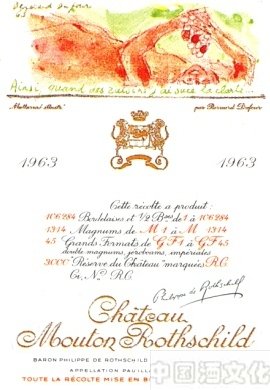 Bernard Dufour
63
Ainsi quand des raisins j'ai sucé la clarté...
Mallarmé illustré par Bernard Dufour
1963 1963
Cette récolte a produit:
106284 Bordelaises et 1/2 Bses de 1 à 106284
1314 Magnums de M 1 à M 1314
45 Grands Formats de GF1 à GF45
double magnums, jéroboams, impériales
3000 "Réserve du Château" marquées R.C.
Ci, No R.C.
Philippe de Rothschild
Château
Mouton Rothschild
BARON PHILIPPE DE ROTHSCHILD
APPELLATION PAUILL
TOUTE LA RÉCOLTE MISE EN B
中国酒文化